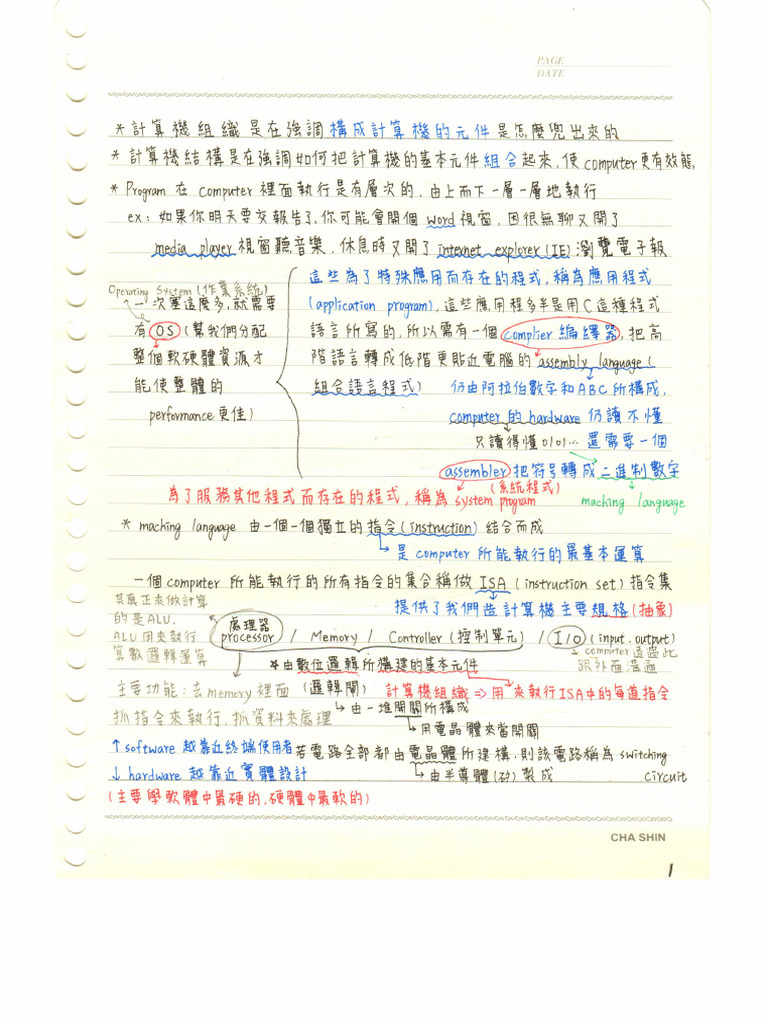 PAGE
DATE
* 計算機組織是在強調構成計算機的元件是怎麼兜出來的
* 計算機結構是在強調如何把計算機的基本元件組合起來, 使computer更有效能,
* Program 在 computer 裡面執行是有層次的, 由上而下一層一層地執行
ex: 如果你明天要交報告了, 你可能會開個 word 視窗, 因很無聊又開了
media player 視窗聽音樂, 休息時又開了 internet explorer (IE) 瀏覽電子報
這些為了特殊應用而存在的程式, 稱為應用程式
(application program), 這些應用程多半是用C這種程式
語言所寫的, 所以需有一個 complier 編繹器, 把高
階語言轉成低階更貼近電腦的 assembly language (
組合語言程式)
仍由阿拉伯數字和ABC所構成,
computer 的 hardware 仍讀不懂
只讀得懂0101… 還需要一個
assembler 把符號轉成二進制數字
(系統程式)
maching language
Operating System (作業系統)
一次塞這麼多, 就需要
有 OS (幫我們分配
整個軟硬體資源才
能使整體的
performance 更佳)
為了服務其他程式而存在的程式, 稱為 system program
* maching language 由一個一個獨立的指令 (instruction) 結合而成
是 computer 所能執行的最基本運算
一個 computer 所能執行的所有指令的集合稱做 ISA (instruction set) 指令集
提供了我們造計算機主要規格 (抽象)
其真正來做計算
的是ALU,
ALU 用來執行
算數邏輯運算
處理器
processor / Memory / Controller (控制單元) / I/O (input. output)
computer 透過此
跟外面溝通
* 由數位邏輯所構建的基本元件
主要功能: 去memory 裡面
抓指令來執行, 抓資料來處理
(邏輯閘) 計算機組織 ⇒ 用來執行ISA中的每道指令
由一堆開關所構成
用電晶體來當開關
↑ software 越靠近終端使用者
↓ hardware 越靠近實體設計
若電路全部都由電晶體所建構, 則該電路稱為 switching
circuit
由半導體 (矽) 製成
(主要學軟體中最硬的, 硬體中最軟的)
CHA SHIN
1